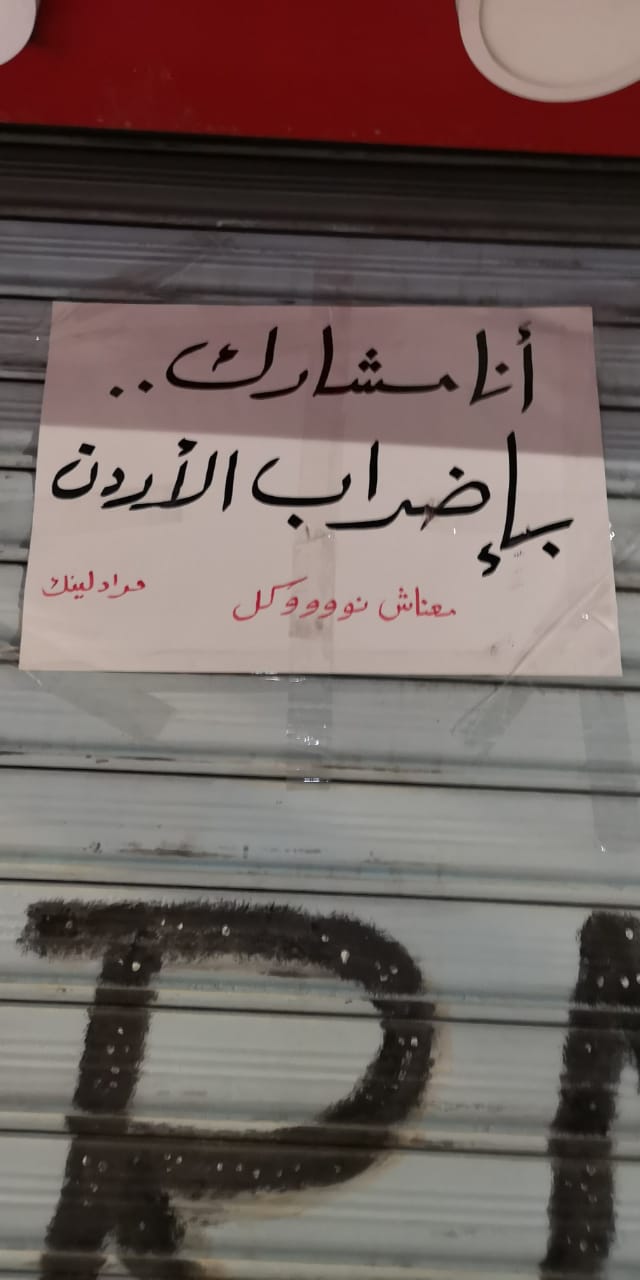 أنا مشارك..
بإضراب الأردن
معناش نووووكل
مرادلينك
R